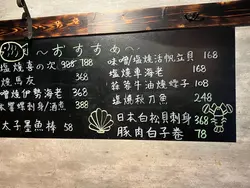 ～おすすめ～
塩燒喜の次 988 788
燒馬友 368
噌燒伊勢海老 368
螺刺身/酒煮 388
太子墨魚棒 58
味噌/塩燒活帆立貝 168
塩燒車海老 368
蒜蓉牛油燒蟶子 108
塩燒秋刀魚 248
日本白松貝刺身 368
豚肉白子卷 78